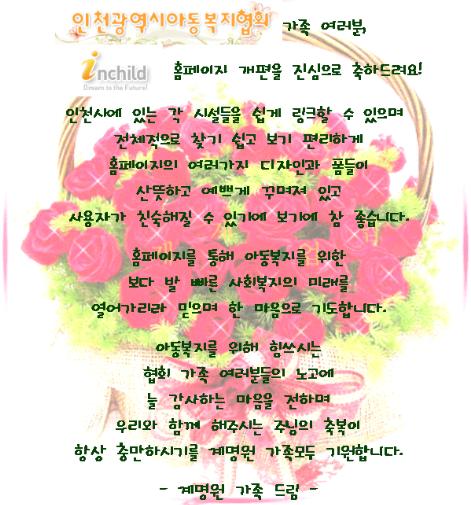 인천광역시아동복지협회 가족 여러분,
inchild 홈페이지 개편을 진심으로 축하드려요!
Dream to the Future!
인천시에 있는 각 시설들을 쉽게 링크할 수 있으며
전체적으로 찾기 쉽고 보기 편리하게
홈페이지의 여러가지 디자인과 폼들이
산뜻하고 예쁘게 꾸며져 있고
사용자가 친숙해질 수 있기에 보기에 참 좋습니다.
홈페이지를 통해 아동복지를 위한
보다 발 빠른 사회복지의 미래를
열어가리라 믿으며 한 마음으로 기도합니다.
아동복지를 위해 힘쓰시는
협회 가족 여러분들의 노고에
늘 감사하는 마음을 전하며
우리와 함께 해주시는 주님의 축복이
항상 충만하시기를 계명원 가족모두 기원합니다.
- 계명원 가족 드림 -